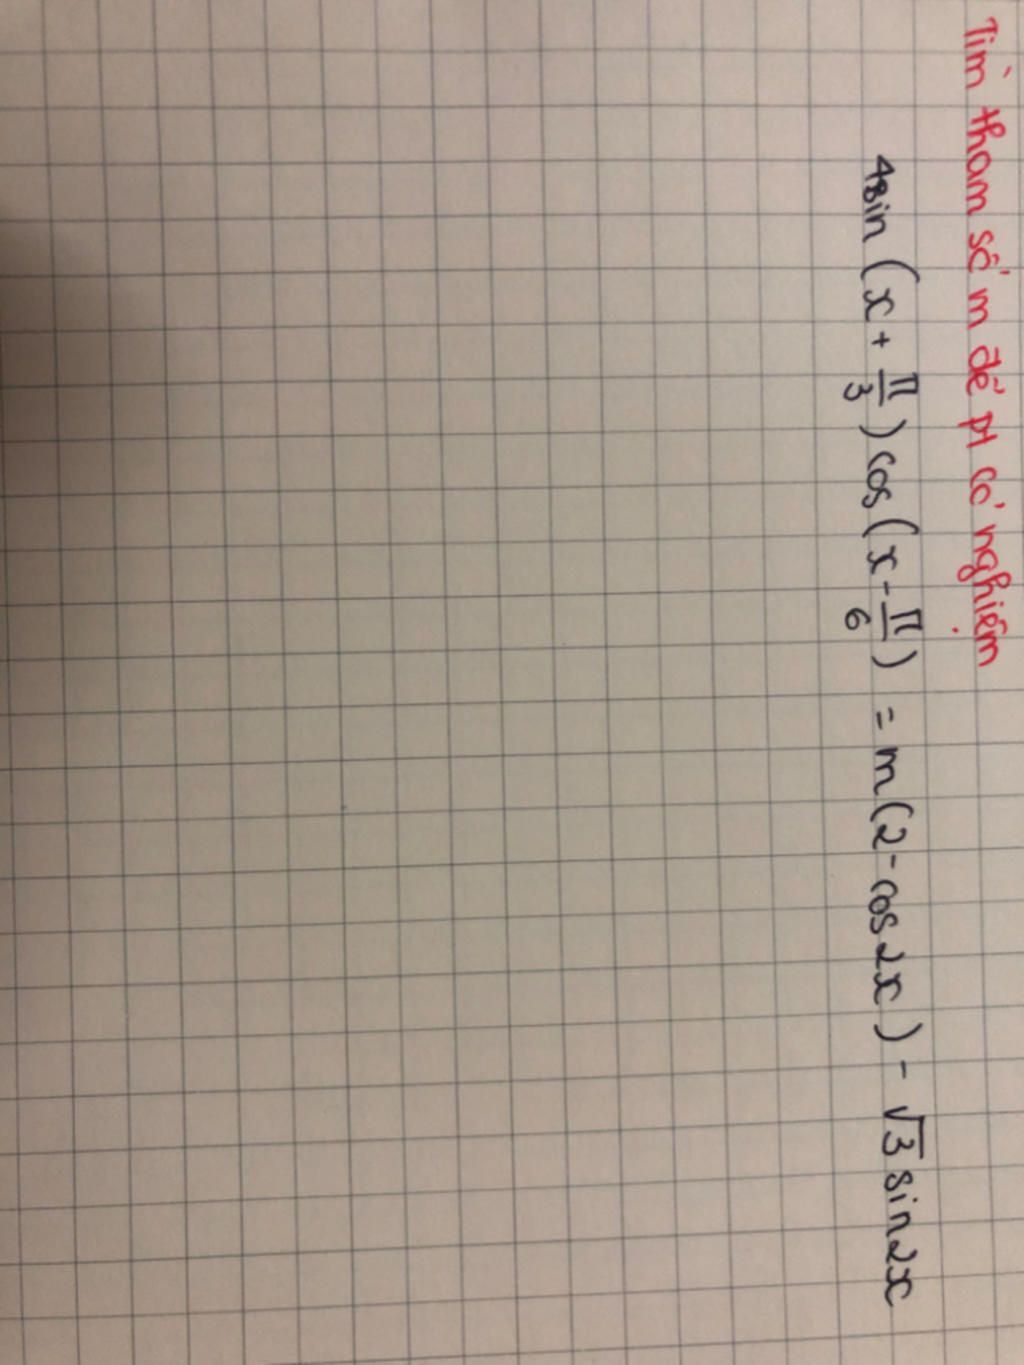 Tìm tham số m để pt có nghiệm
4sin (x + π/3) cos (x - π/6) = m(2 - cos2x) - √3 sin2x